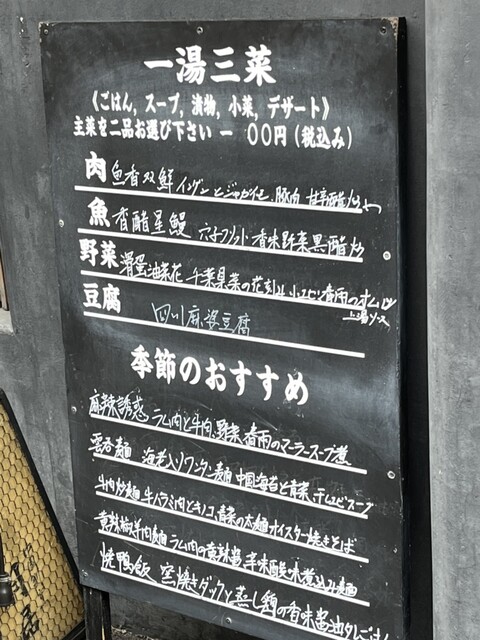 一湯三菜
《ごはん, スープ, 漬物, 小菜, デザート》
主菜を二品お選び下さい ー 00円(税込み)
肉 魚香双鮮 インゲンとジャガイモ、豚肉 甘辛酢炒め
魚 香醋星鰻 穴子フリット 香味野菜黒酢炒
野菜 滑蛋油菜花 千葉県菜の花 小エビ 春雨のオムレツ
上湯ソース
豆腐 四川麻婆豆腐
季節のおすすめ
麻辣誘惑 ラム肉と牛肉、野菜、春雨のマーラースープ煮
雲呑麺 海老入りワンタン麺 中国海苔と青菜、干しエビスープ
牛肉炒麺 牛バラミ肉とキノコ、青菜の太麺オイスター焼きそば
羊肉麺 ラム肉の 辛味酸味煮込み麺
焼鴨飯 窯焼きダックと蒸し鶏の香味醤油